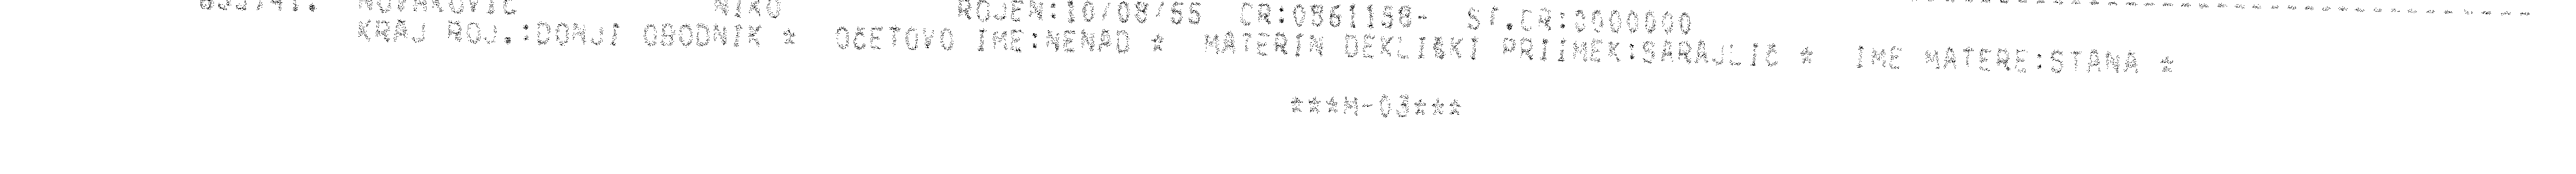 NOVAKOVIC NIKO ROJEN:10/08/55 CR:0861158- ST.CR:0000000
KRAJ ROJ.:DONJI OBODNIK * OČETOVO IME:NENAD * MATERIN DEKLIŠKI PRIIMEK:SARAJLIĆ * IME MATERE:STANA *
***M-03***